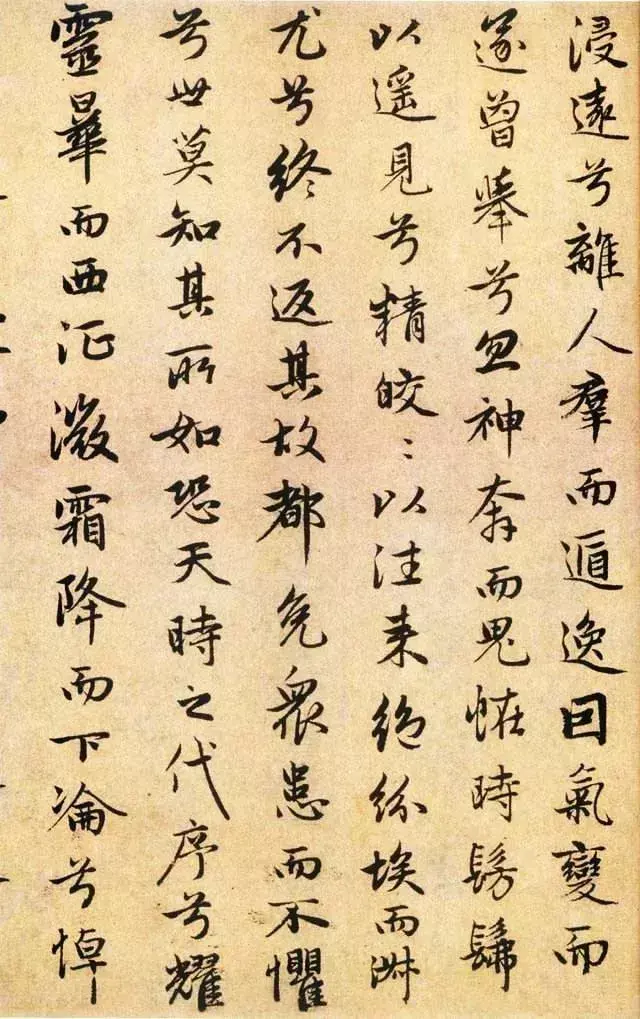 浸遠兮離人羣而遁逸因氣變而
遂曾舉兮忽神奔而鬼恠時髣髴
以遥見兮精皎〻以往来絶紛埃而淑
尤兮終不返其故都免衆患而不懼
兮世莫知其所如恐天時之代序兮耀
靈曅而西征微霜降而下淪兮悼